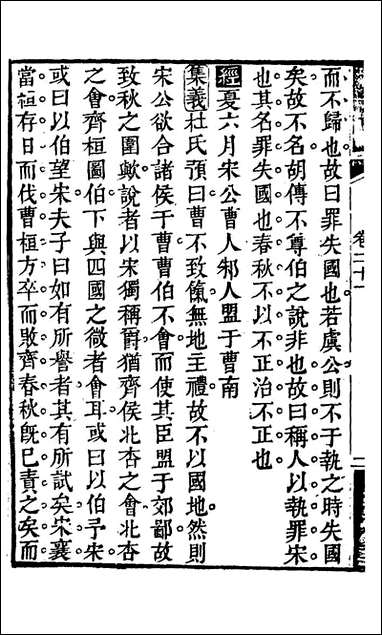 而不歸也故曰罪失國也若虞公則不于執之時失國
矣故不名胡傳不尊伯之說非也故曰稱人以執罪宋
也其名罪失國也春秋不以不正治不正也
經夏六月宋公曹人邾人盟于曹南
集義杜氏預曰曹不致餼無地主禮故不以國地然則
宋公欲合諸侯于曹曹伯不會而使其臣盟于郊鄙故
致秋之圍歟說者以宋獨稱爵猶齊侯北杏之會北杏
之會齊桓圖伯下與四國之微者會耳或曰以伯予宋
或曰以伯望宋夫子曰如有所譽者其有所試矣宋襄
當桓存日而伐曹桓方卒而敗齊春秋旣已責之矣而
卷二十一
二